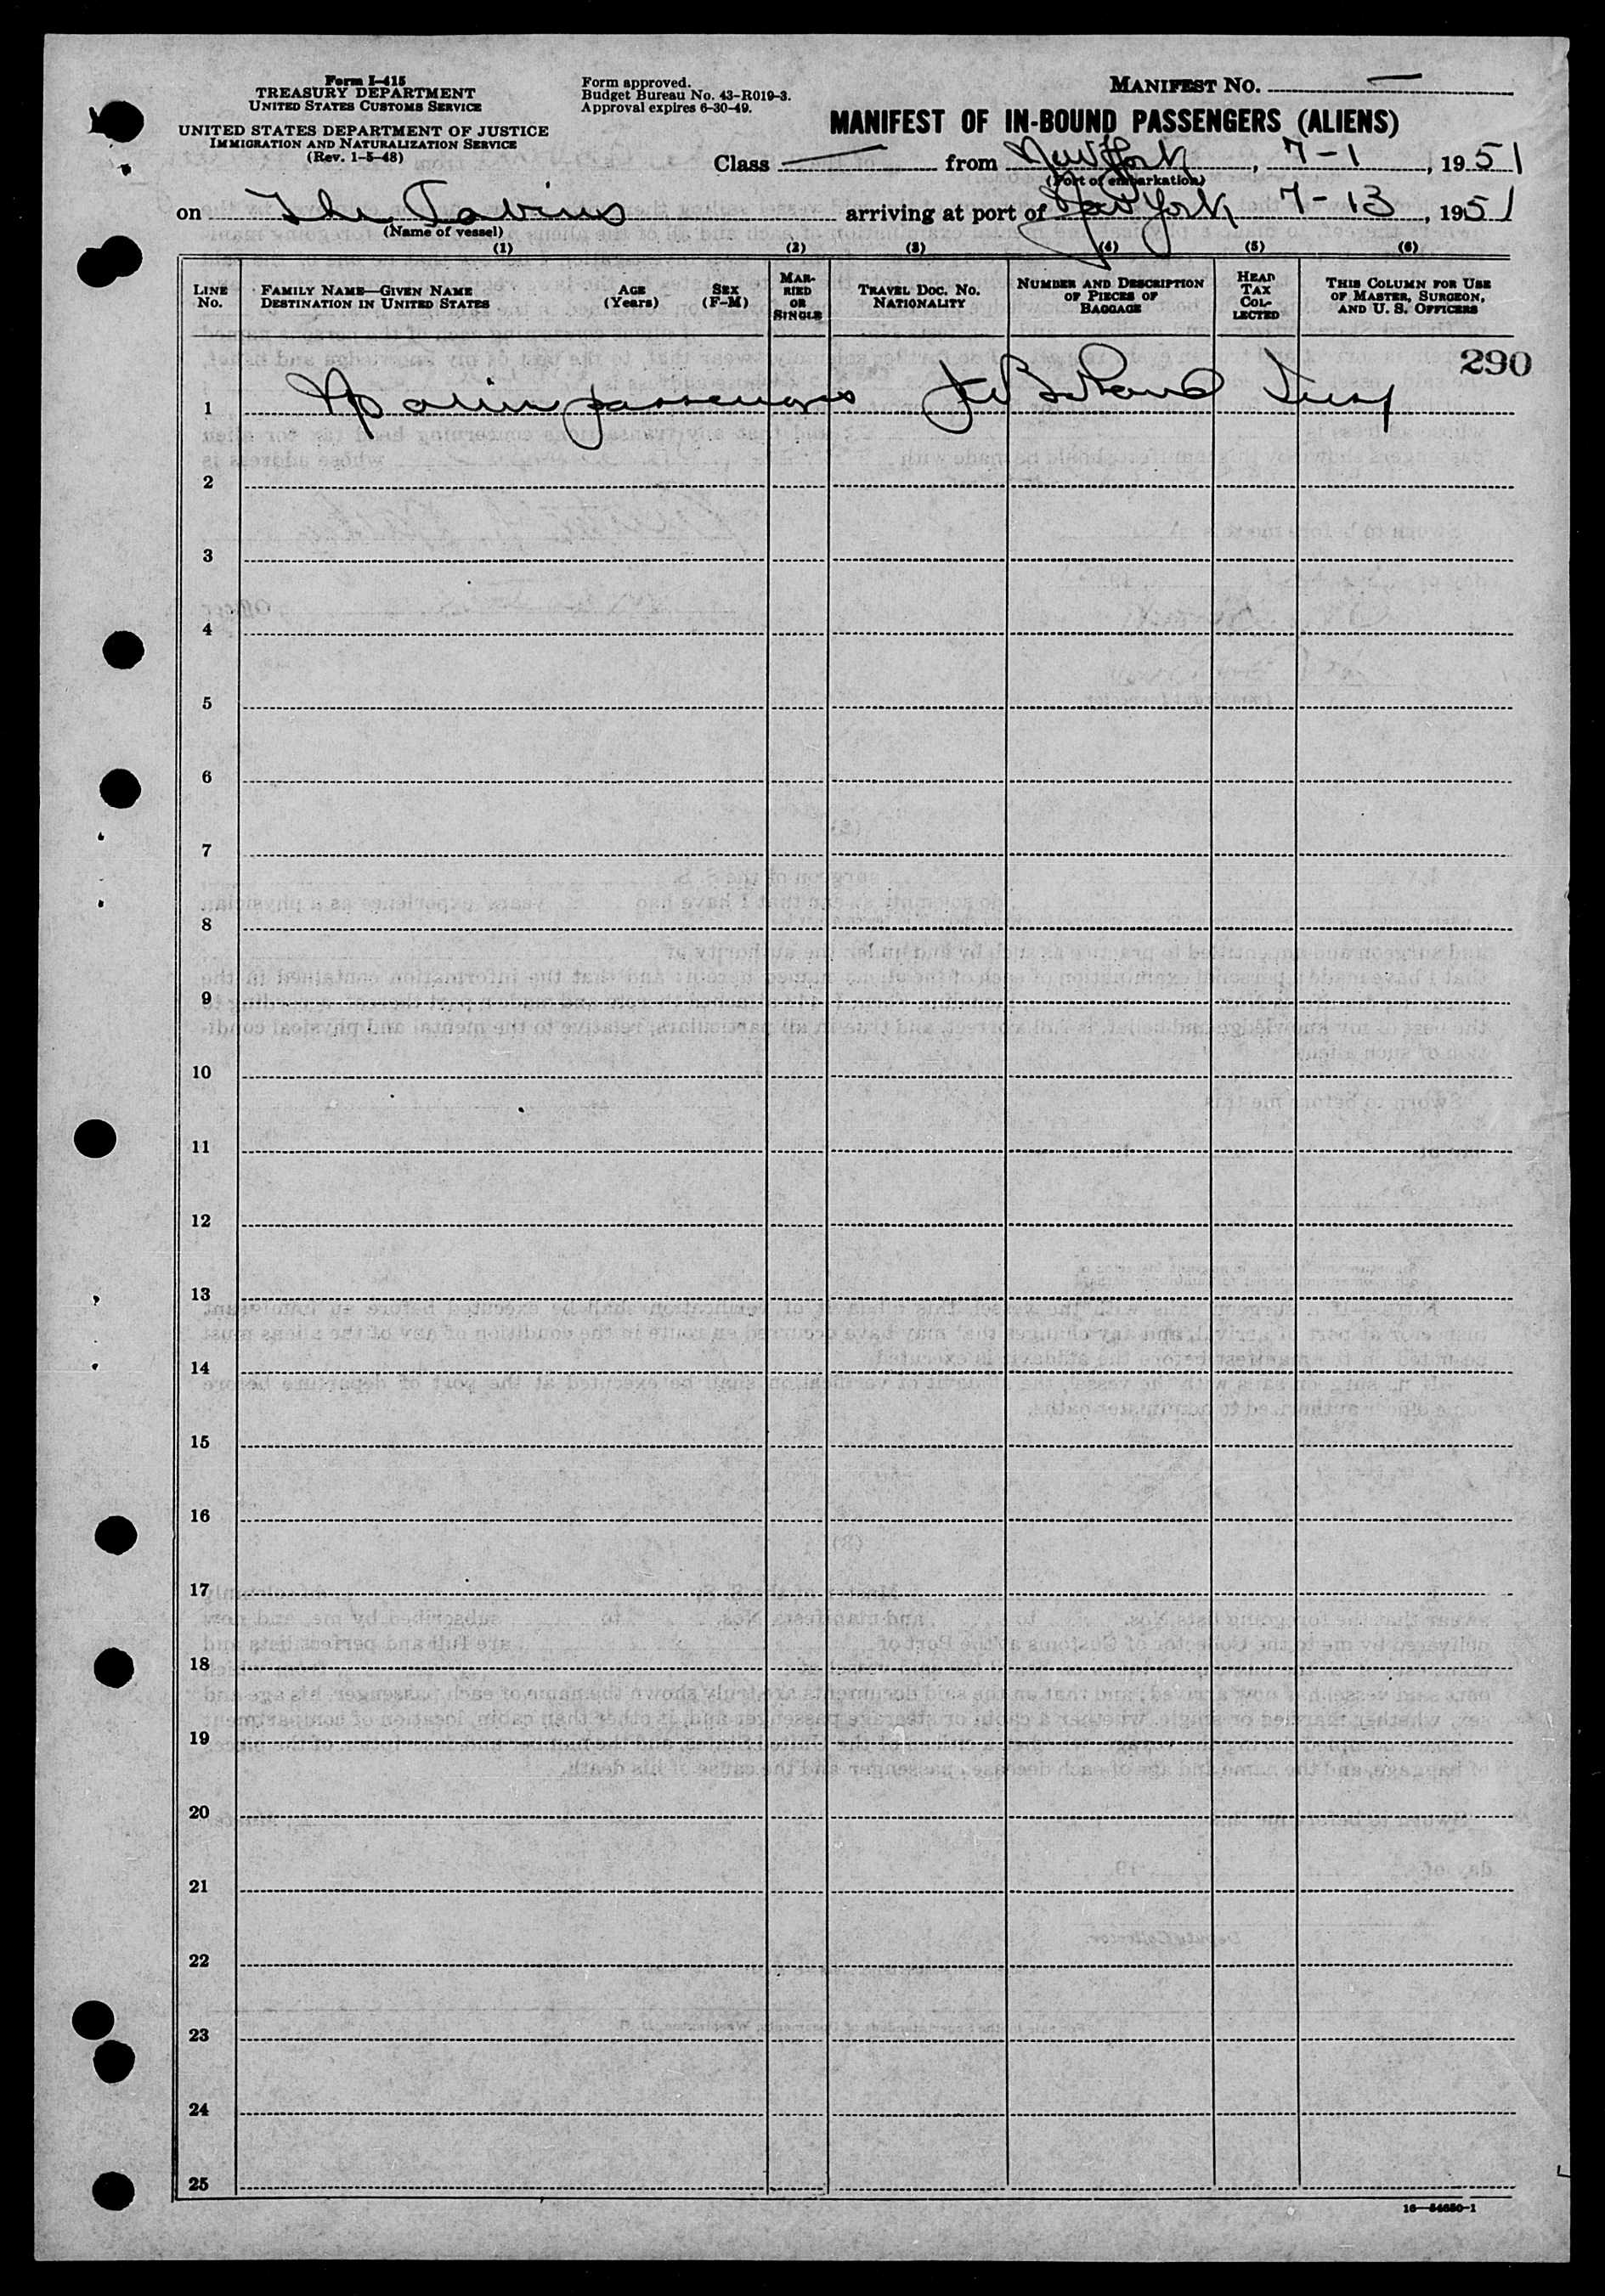 Form I-415
TREASURY DEPARTMENT
UNITED STATES CUSTOMS SERVICE
UNITED STATES DEPARTMENT OF JUSTICE
IMMIGRATION AND NATURALIZATION SERVICE
(Rev. 1-5-48)
Form approved.
Budget Bureau No. 43-R019-3.
Approval expires 6-30-49.
MANIFEST NO. —
MANIFEST OF IN-BOUND PASSENGERS (ALIENS)
Class — from New York, 7-1, 1951
(Port of embarkation)
on The arriving at port of New York 7-13, 1951
(Name of vessel)
(1) (2) (3) (4) (5) (6)
LINE No.
FAMILY NAME—GIVEN NAME
DESTINATION IN UNITED STATES
AGE (Years)
SEX (F-M)
MARRIED OR SINGLE
TRAVEL DOC. NO. NATIONALITY
NUMBER AND DESCRIPTION OF PIECES OF BAGGAGE
HEAD TAX COLLECTED
THIS COLUMN FOR USE OF MASTER, SURGEON, AND U. S. OFFICERS
290
1 No alien passengers
2
3
4
5
6
7
8
9
10
11
12
13
14
15
16
17
18
19
20
21
22
23
24
25
16—54650-1